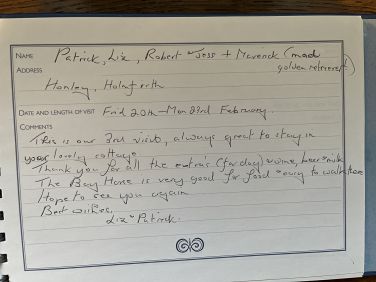 NAME Patrick, Liz, Robert Jess + Maverick (mad
golden retriever)
ADDRESS
Honley, Holmfirth
DATE AND LENGTH OF VISIT Frid 20th - Mon 23rd February.
COMMENTS
This is our 3rd visit, always great to stay in
your lovely cottage.
Thank you for all the extra's (for dog) wine, beer + milk
The Bay Horse is very good for food + easy to walk there
Hope to see you again
Best wishes,
Liz + Patrick.